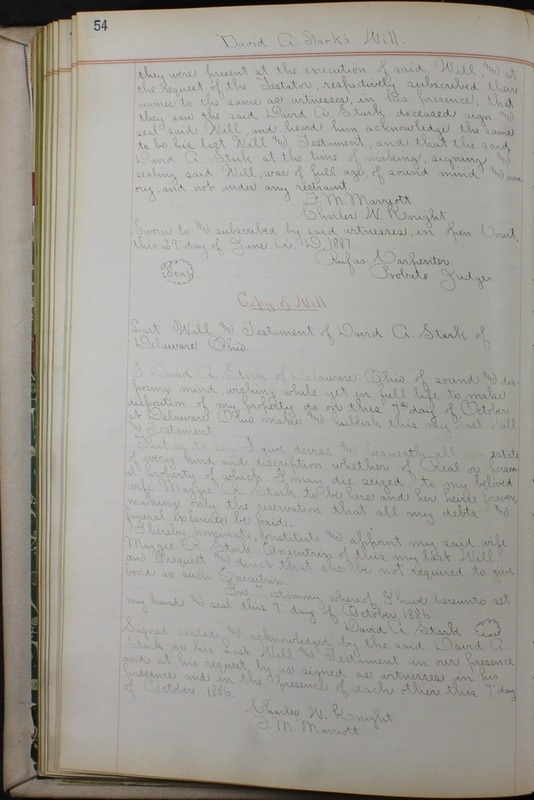 54
David A. Stark's Will.
they were present at the execution of said Will, & at
the request of the Testator, respectively subscribed their
names to the same as witnesses, in his presence, that
they saw the said David A. Stark deceased sign &
seal said Will, and heard him acknowledge the same
to be his last Will & Testament, and that the said
David A. Stark at the time of making, signing &
sealing said Will, was of full age, of sound mind & mem
ory and not under any restraint.
F. M. Marriott
Charles W. Knight
Sworn to & subscribed by said witnesses in Open Court,
this 29" day of June A. D. 1887.
Rufus Carpenter
Seal
Probate Judge
Copy of Will.
Last Will & Testament of David A. Stark of
Delaware Ohio.
I David A. Stark of Delaware Ohio of sound & dis-
posing mind wishing while yet in full life to make
disposition of my property do on this 7th day of October
at Delaware Ohio make & publish this my Last Will
& Testament.
That is to say I give devise & bequeath all my estate
of every kind and discription whether of Real or person-
al property of which I may die seized to my beloved
wife Maggie R. Stark to be hers and her heirs forever,
making only the reservation that all my debts &
funeral expenses be paid.
I hereby nominate, constitute & appoint my said wife
Maggie R. Stark Executrix of this my last Will.
and I request & direct that she be not required to give
bond as such Executrix.
In testimony whereof I have hereunto set
my hand & seal this 7" day of October 1886.
David A. Stark
Signed sealed & acknowledged by the said David A.
Stark as his Last Will & Testament in our presence
and at his request by us signed as witnesses in his
presence and in the presence of each other this 7" day
of October 1886.
Charles W. Knight
F. M. Marriott